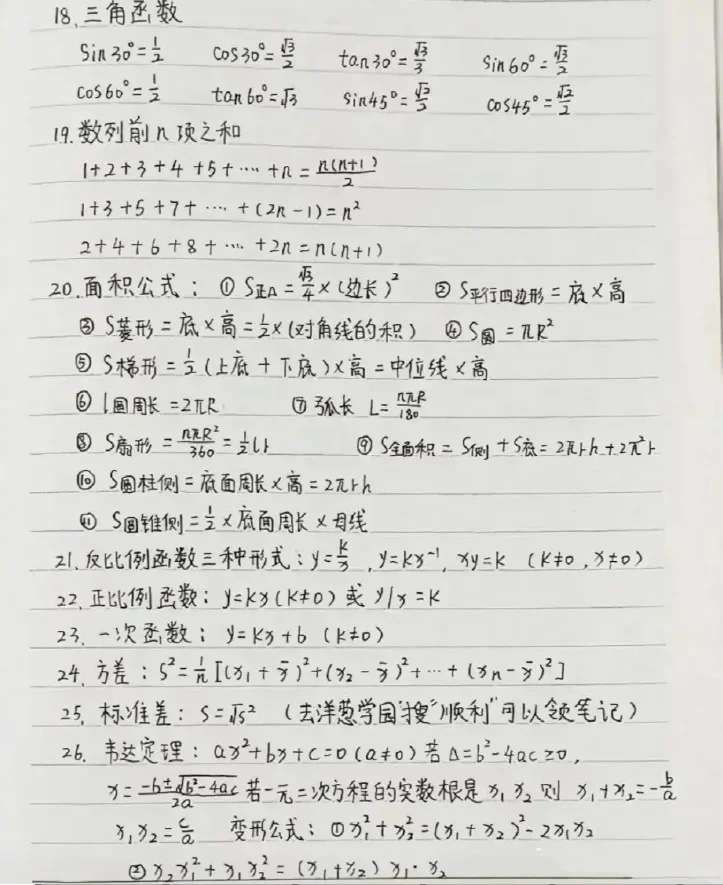 18. 三角函数
sin30°=1/2 cos30°=√3/2 tan30°=√3/3 sin60°=√3/2
cos60°=1/2 tan60°=√3 sin45°=√2/2 cos45°=√2/2
19. 数列前n项之和
1+2+3+4+5+……+n=n(n+1)/2
1+3+5+7+……+(2n-1)=n²
2+4+6+8+……+2n=n(n+1)
20. 面积公式：① S正△=√3/4×(边长)² ② S平行四边形=底×高
③ S菱形=底×高=1/2×(对角线的积) ④ S圆=πR²
⑤ S梯形=1/2(上底+下底)×高=中位线×高
⑥ l圆周长=2πR ⑦ 弧长 L=nπR/180
⑧ S扇形=nπR²/360=1/2lr ⑨ S全面积=S侧+S底=2πrh+2π²r
⑩ S圆柱侧=底面周长×高=2πrh
⑪ S圆锥侧=1/2×底面周长×母线
21. 反比例函数三种形式：y=k/x, y=kx⁻¹, xy=k (k≠0, x≠0)
22. 正比例函数：y=kx(k≠0) 或 y/x=k
23. 一次函数：y=kx+b (k≠0)
24. 方差：S²=1/n[(x₁+x̄)²+(x₂-x̄)²+…+(xn-x̄)²]
25. 标准差：S=√s² (去洋葱学园"搜"顺利"可以领笔记)
26. 韦达定理：ax²+bx+c=0(a≠0) 若△=b²-4ac≥0,
x=-b±√b²-4ac/2a 若一元二次方程的实数根是x₁ x₂ 则 x₁+x₂=-b/a
x₁x₂=c/a 变形公式：①x₁²+x₂²=(x₁+x₂)²-2x₁x₂
②x₂x₁²+x₁x₂²=(x₁+x₂)x₁·x₂